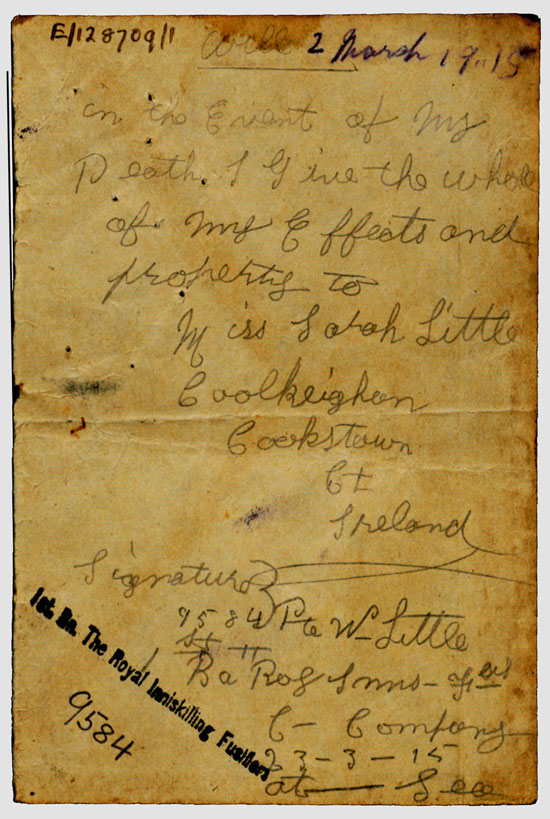 E/128709/1
Will 2 March 1915
in the Event of My
Death I Give the whole
of my Effects and
property to
Miss Sarah Little
Coolkeighan
Cookstown
Ireland
Signature
9584 Pte W Little
1st Bn. The Royal Inniskilling Fusiliers
Ba Roy Inns
9584
C - Company
23-3-15
at Sea